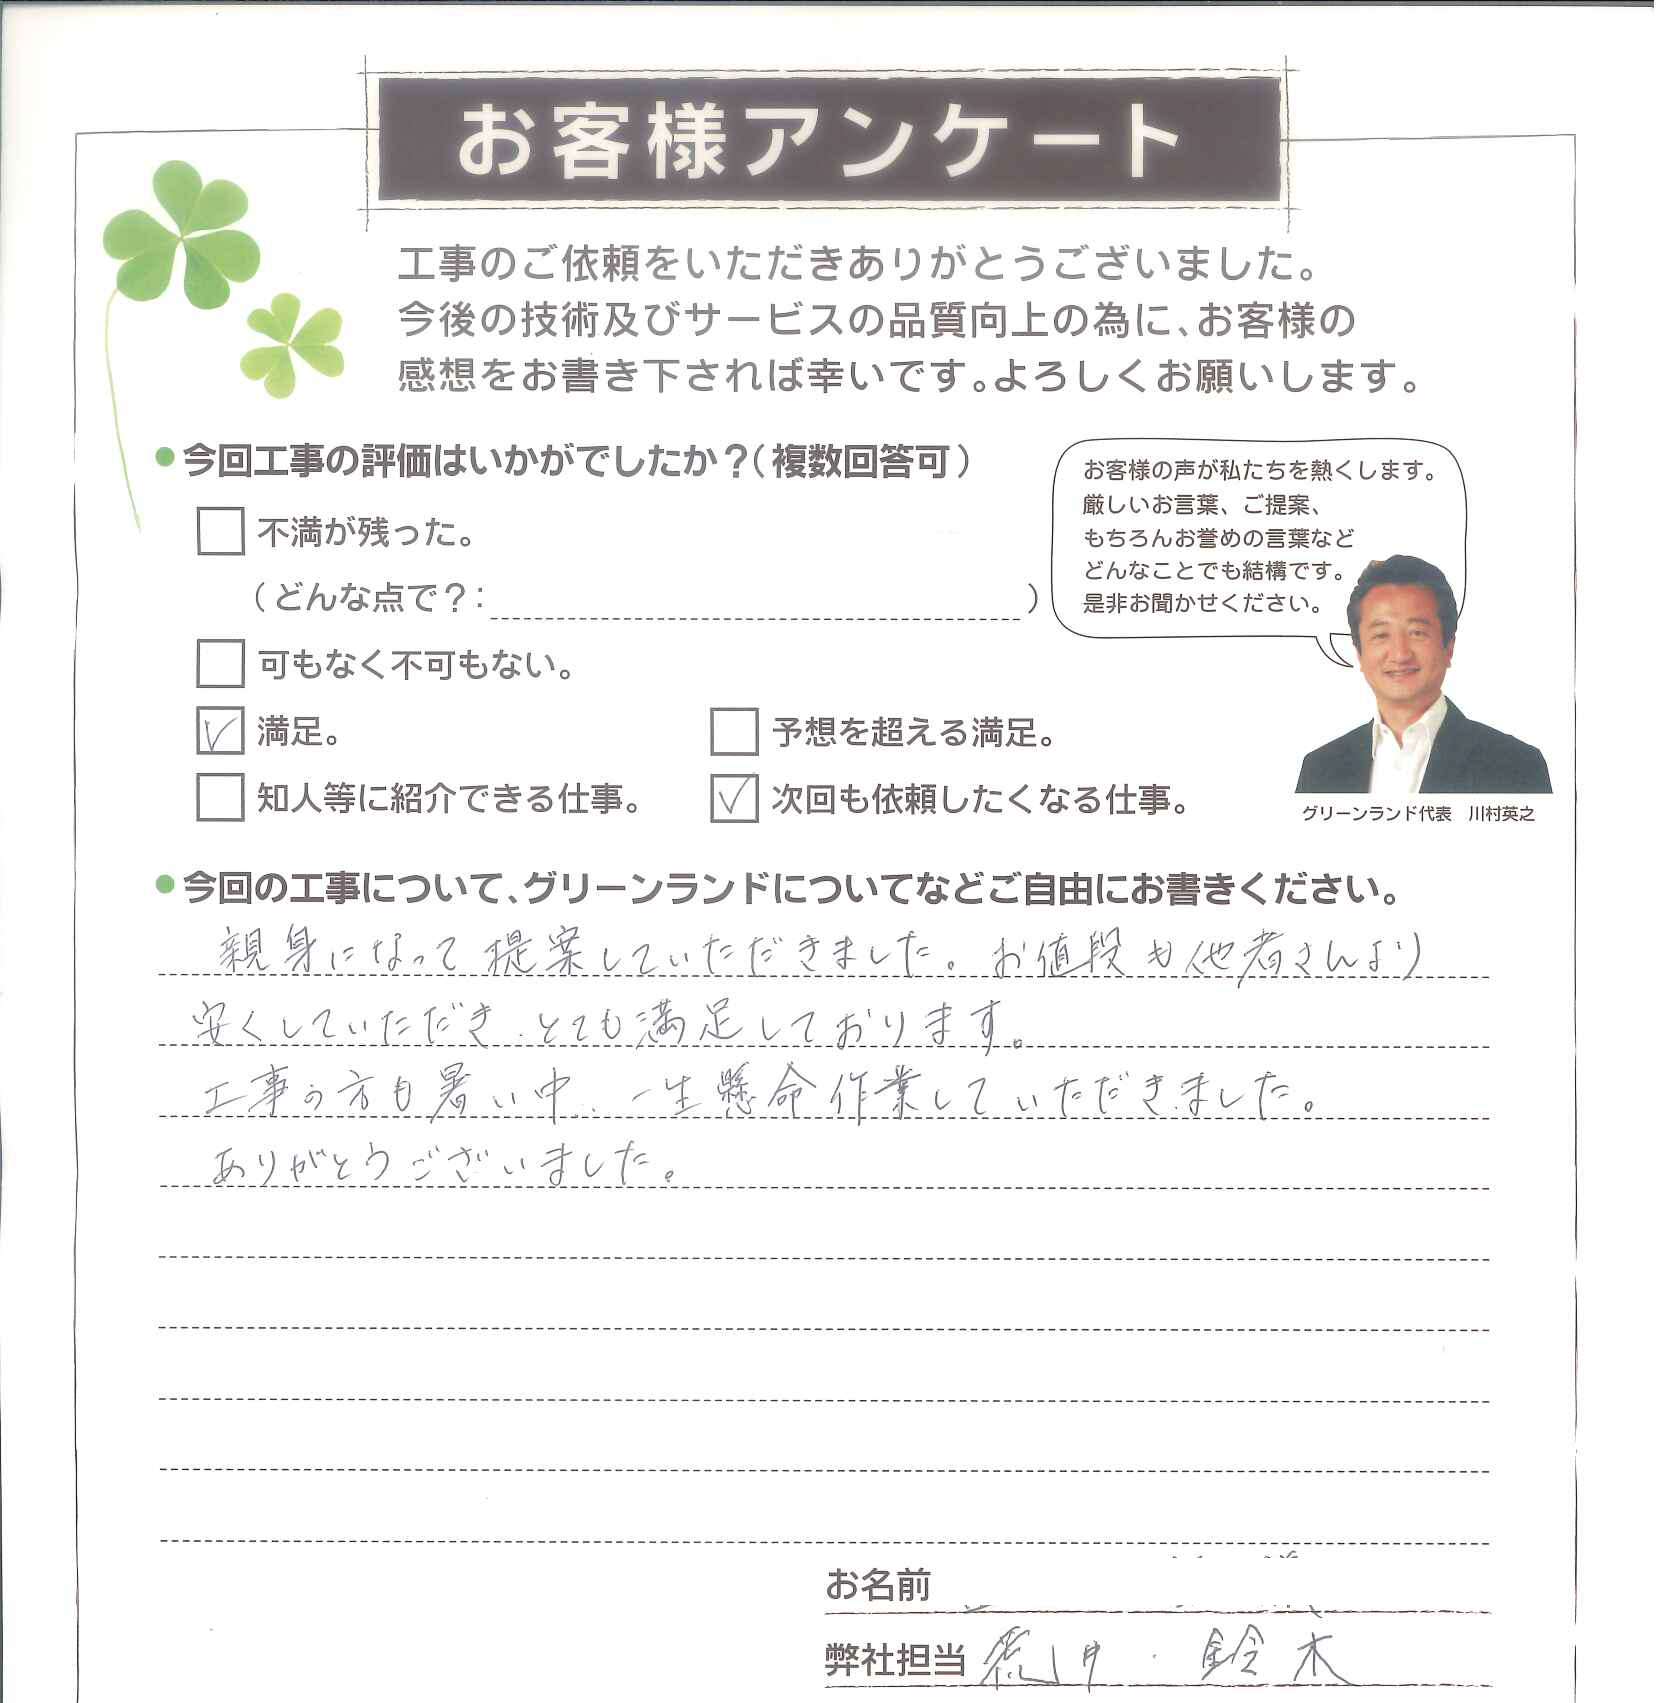 お客様アンケート
工事のご依頼をいただきありがとうございました。
今後の技術及びサービスの品質向上の為に、お客様の
感想をお書き下されば幸いです。よろしくお願いします。
今回工事の評価はいかがでしたか？（複数回答可）
不満が残った。
（どんな点で？：　）
可もなく不可もない。
満足。
予想を超える満足。
知人等に紹介できる仕事。
次回も依頼したくなる仕事。
お客様の声が私たちを熱くします。
厳しいお言葉、ご提案、
もちろんお誉めの言葉など
どんなことでも結構です。
是非お聞かせください。
グリーンランド代表　川村英之
今回の工事について、グリーンランドについてなどご自由にお書きください。
親身になって提案していただきました。お値段も他者さんより
安くしていただき、とても満足しております。
工事の方も暑い中、一生懸命作業していただきました。
ありがとうございました。
お名前
弊社担当 荒井・鈴木